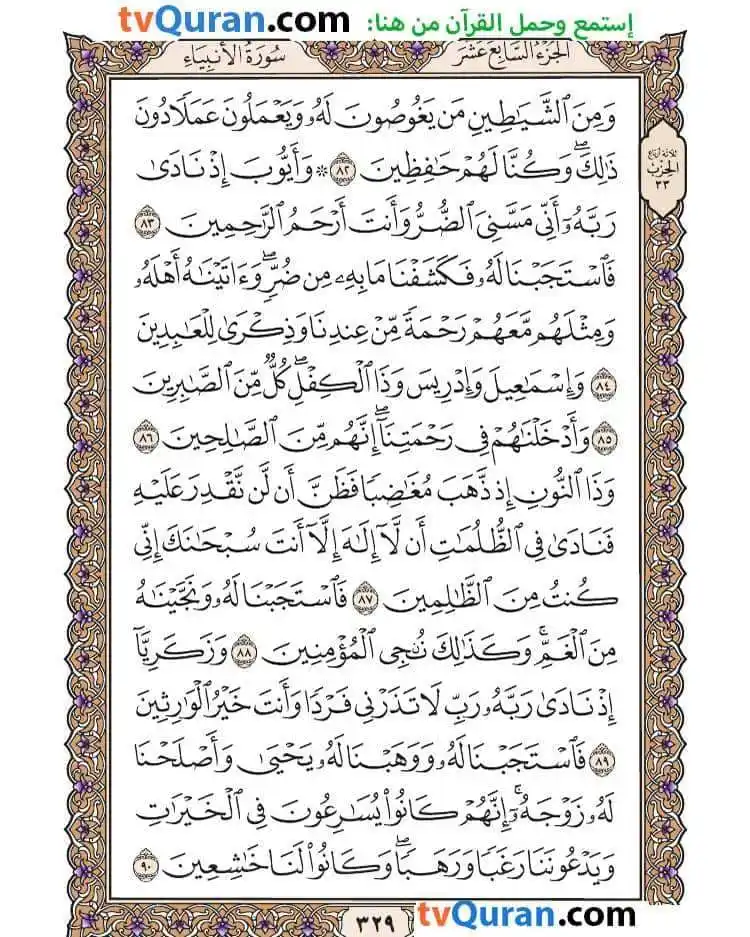 tvQuran.com إستمع وحمل القرآن من هنا:
الجزء السابع عشر
سورة الأنبياء
وَمِنَ ٱلشَّيَٰطِينِ مَن يَغُوصُونَ لَهُۥ وَيَعْمَلُونَ عَمَلًا دُونَ
ذَٰلِكَۖ وَكُنَّا لَهُمْ حَٰفِظِينَ ٨٢ ۞ وَأَيُّوبَ إِذْ نَادَىٰ
رَبَّهُۥٓ أَنِّي مَسَّنِيَ ٱلضُّرُّ وَأَنتَ أَرْحَمُ ٱلرَّٰحِمِينَ ٨٣
فَٱسْتَجَبْنَا لَهُۥ فَكَشَفْنَا مَا بِهِۦ مِن ضُرٍّۖ وَءَاتَيْنَٰهُ أَهْلَهُۥ
وَمِثْلَهُم مَّعَهُمْ رَحْمَةً مِّنْ عِندِنَا وَذِكْرَىٰ لِلْعَٰبِدِينَ
٨٤ وَإِسْمَٰعِيلَ وَإِدْرِيسَ وَذَا ٱلْكِفْلِۖ كُلٌّ مِّنَ ٱلصَّٰبِرِينَ
٨٥ وَأَدْخَلْنَٰهُمْ فِي رَحْمَتِنَآۖ إِنَّهُم مِّنَ ٱلصَّٰلِحِينَ ٨٦
وَذَا ٱلنُّونِ إِذ ذَّهَبَ مُغَٰضِبًا فَظَنَّ أَن لَّن نَّقْدِرَ عَلَيْهِ
فَنَادَىٰ فِي ٱلظُّلُمَٰتِ أَن لَّآ إِلَٰهَ إِلَّآ أَنتَ سُبْحَٰنَكَ إِنِّي
كُنتُ مِنَ ٱلظَّٰلِمِينَ ٨٧ فَٱسْتَجَبْنَا لَهُۥ وَنَجَّيْنَٰهُ
مِنَ ٱلْغَمِّۚ وَكَذَٰلِكَ نُۨجِي ٱلْمُؤْمِنِينَ ٨٨ وَزَكَرِيَّآ
إِذْ نَادَىٰ رَبَّهُۥ رَبِّ لَا تَذَرْنِي فَرْدًا وَأَنتَ خَيْرُ ٱلْوَٰرِثِينَ
٨٩ فَٱسْتَجَبْنَا لَهُۥ وَوَهَبْنَا لَهُۥ يَحْيَىٰ وَأَصْلَحْنَا
لَهُۥ زَوْجَهُۥٓۚ إِنَّهُمْ كَانُوا۟ يُسَٰرِعُونَ فِي ٱلْخَيْرَٰتِ
وَيَدْعُونَنَا رَغَبًا وَرَهَبًاۖ وَكَانُوا۟ لَنَا خَٰشِعِينَ ٩٠
ثلاثة أرباع
الحزب
٣٣
٣٢٩
tvQuran.com